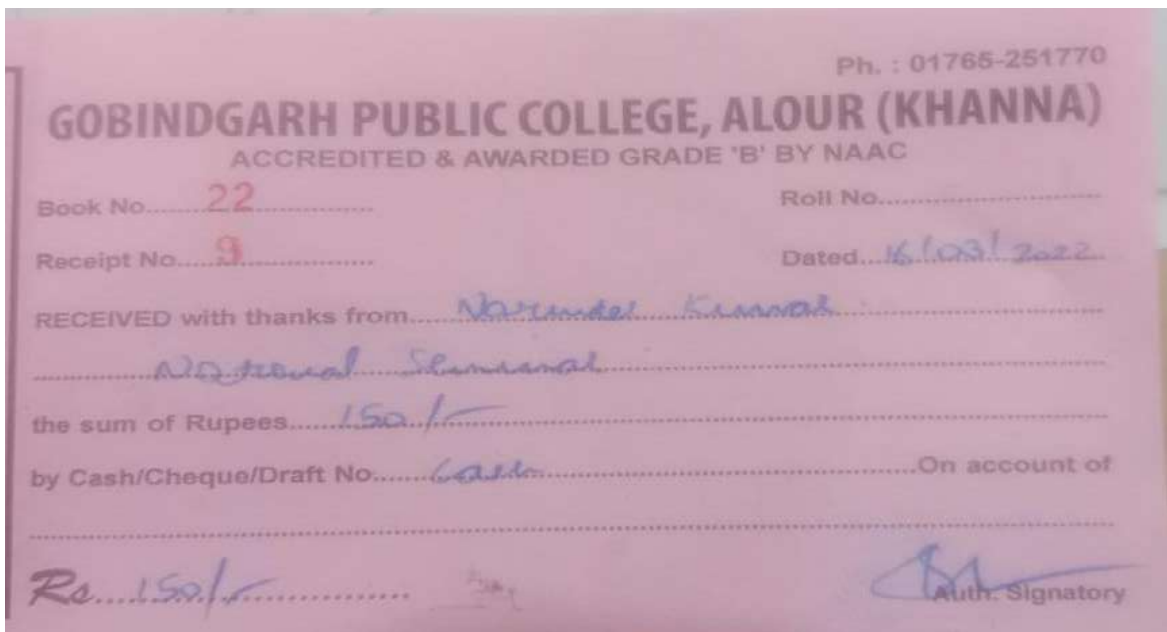 Ph. : 01765-251770
GOBINDGARH PUBLIC COLLEGE, ALOUR (KHANNA)
ACCREDITED & AWARDED GRADE 'B' BY NAAC
Book No. 22 Roll No.
Receipt No. 9 Dated 16/03/2022
RECEIVED with thanks from Narinder Kumar
National Seminar
the sum of Rupees 150/-
by Cash/Cheque/Draft No. Cash On account of
Rs. 150/-
Auth. Signatory